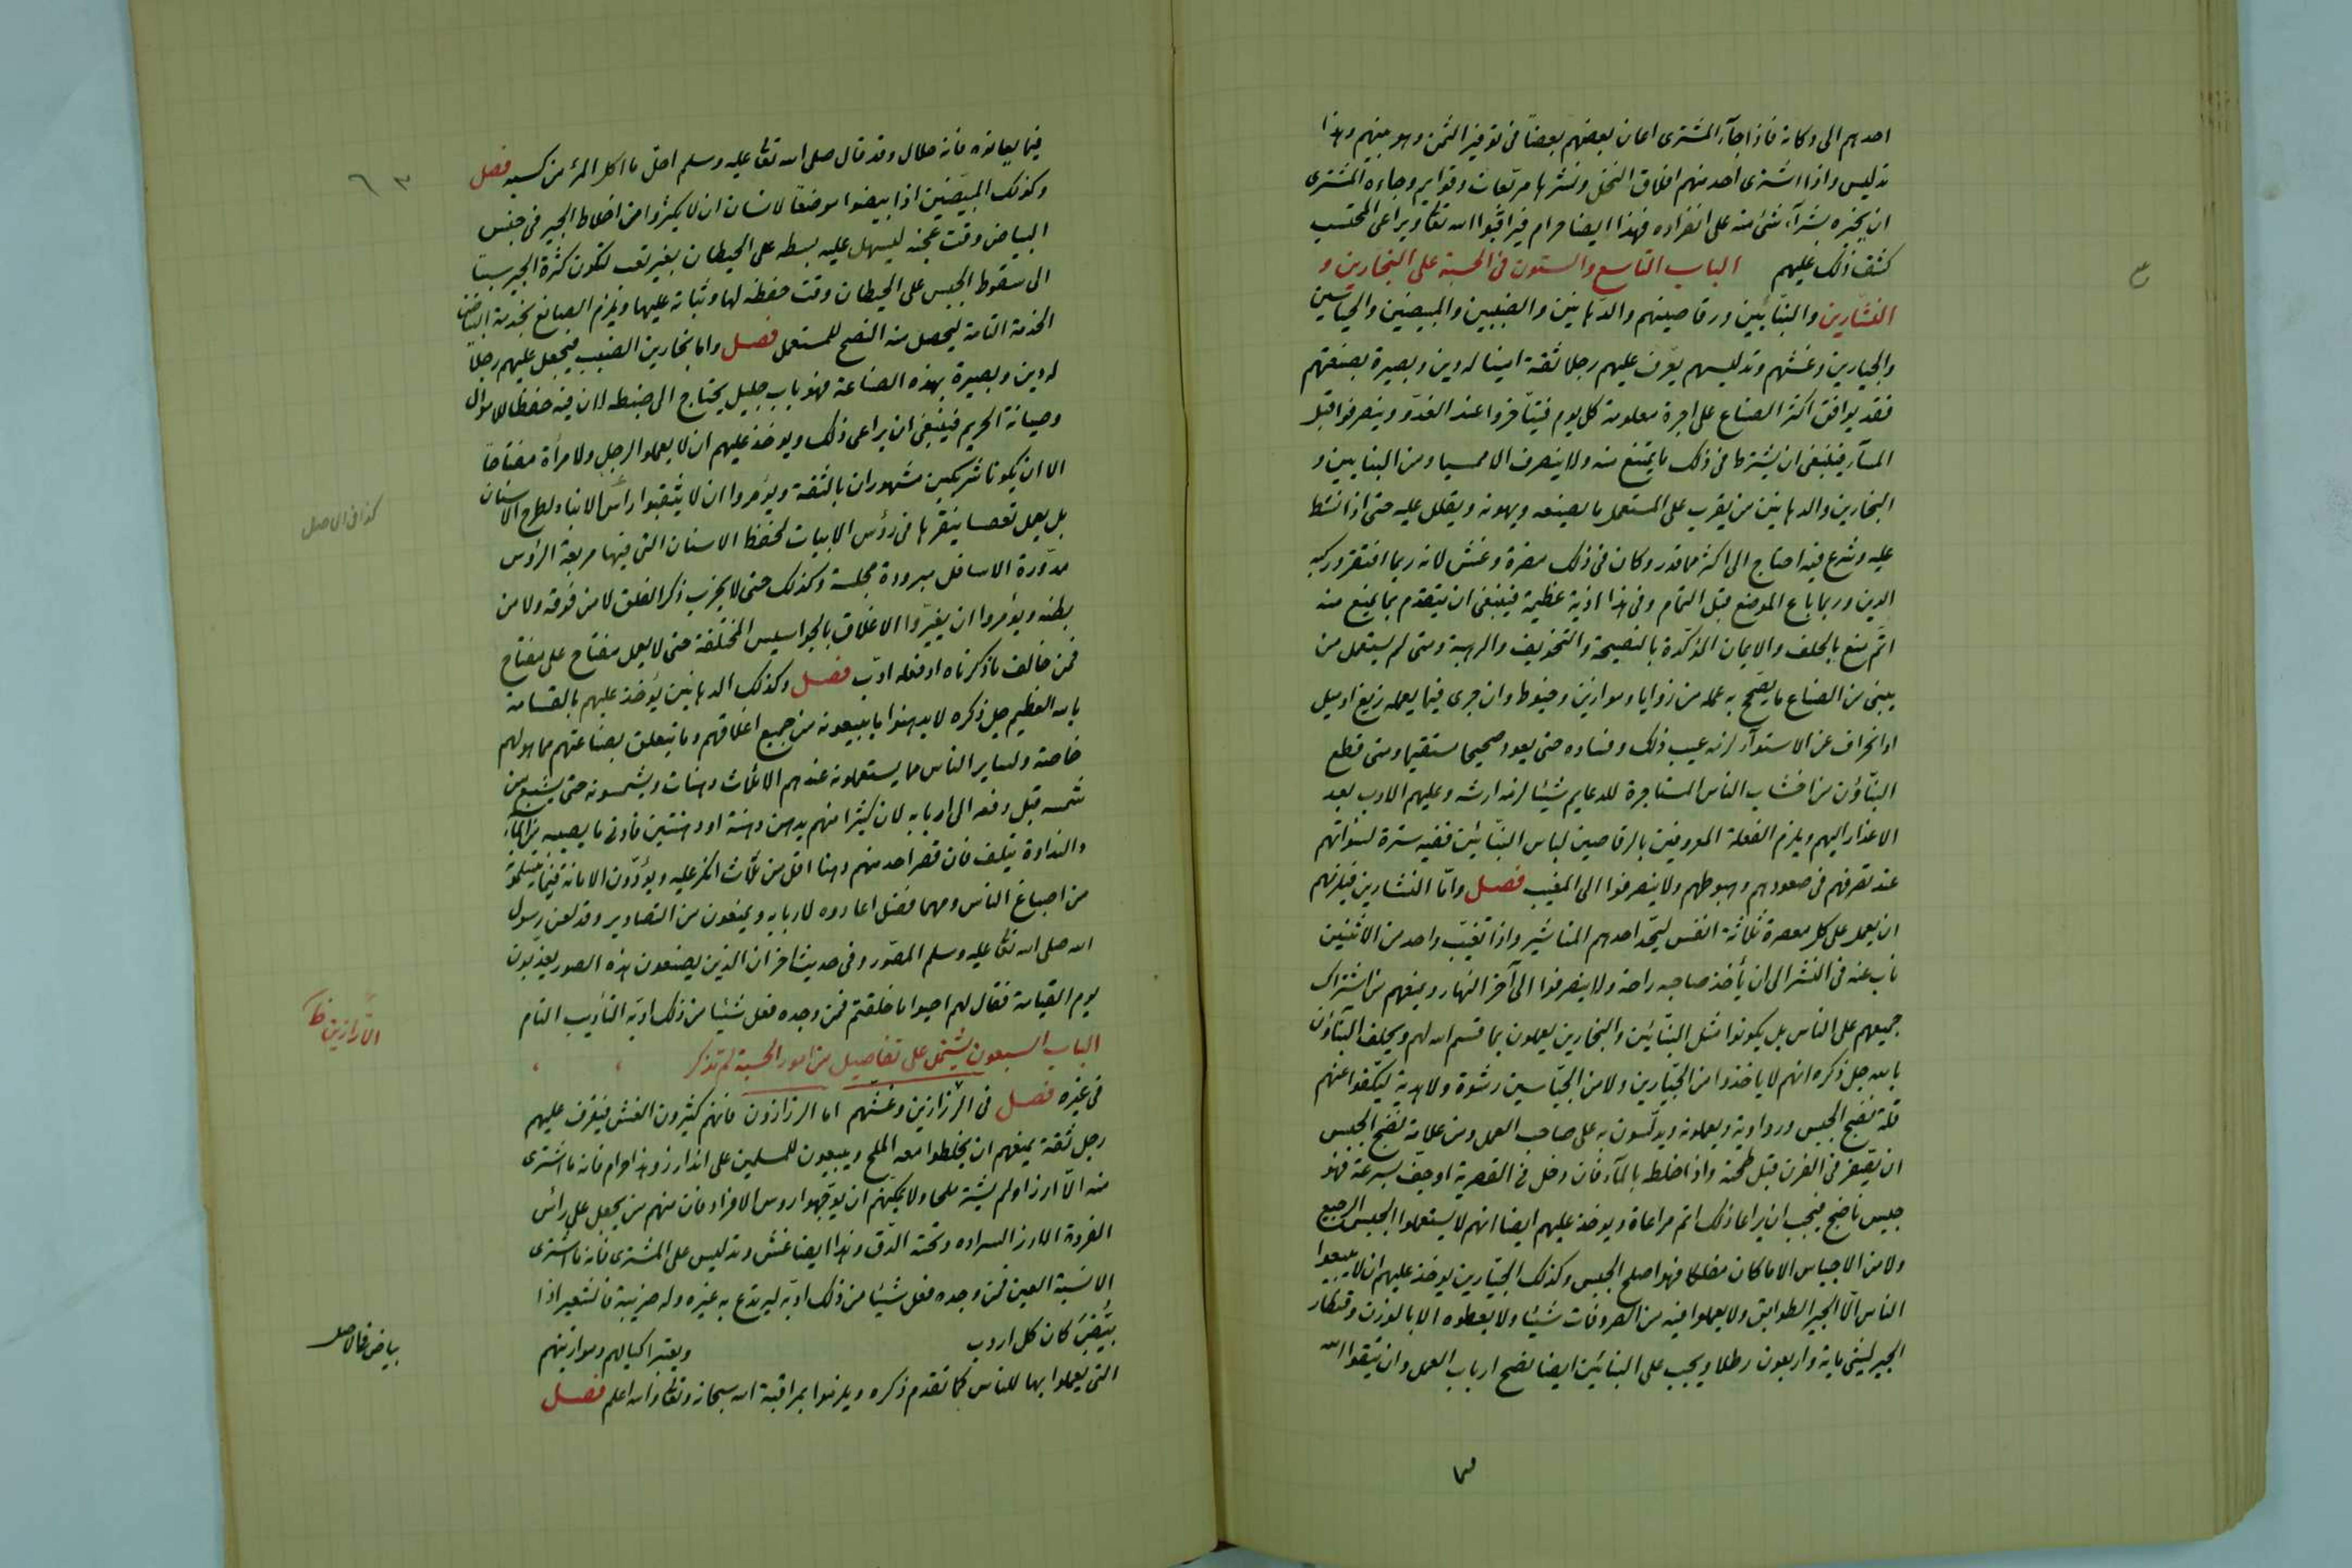 احدهم الى دكانه فاذا جآء المشترى اعان بعضهم بعضاً فى توفير الثمن وهو بينهم وهذا
تدليس واذا اشترى احد منهم افلاق النخل ونشرها مربّعات وقوايم وجاءه المشترى
ان يخبره بشرآء شئ منه على انفراده فهذا ايضا حرام فيراقبوا الله تعالى ويراعى المحتسب
كشف ذلك عليهم الباب التاسع والستون فى الحسبة على النجارين و
النشّارين والبنّائين ورقاصينهم والدّهانين والضببيين والمبيضين والجباسين
والجيارين وغشهم وتدليسهم يعّرف عليهم رجلا ثقة امينا له دين وبصيرة بصنعتهم
فقد يوافق اكثر الصناع على اجرة معلومة كل يوم فيتأخروا عند الغدّو وينصرفوا قبل
المسآء فينبغى ان يشترط فى ذلك ما يمتنع منه ولا ينصرف الا ممسيا ومن البنايين و
النجارين والدهانين من يقرب على المستعمل ما يصنعه ويهونه ويقلل عليه حتى اذا نشط
عليه وشرع فيه احتاج الى اكثر مما قدر وكان فى ذلك مضرة وغش لانه ربما افتقر وركبه
الدين وربما باع الموضع قبل التمام وفى هذا اذية عظيمة فينبغى ان يتقدم بما يمنع منه
اتّم منع بالحلف والايمان المؤكّدة بالنصيحة والتخويف والرهبة ومتى لم يستعمل من
يبنى من الصناع ما يصّح به عمله من زوايا وموازين وخيوط وان جرى فيما يعمله زيغ او ميل
او انحراف عن الاستوآء لزمه عيب ذلك وفساده حتى يعود صحيحا مستقيما ومتى قطع
البنّاؤن من اخشاب الناس المستاجرة للدعايم شيئا لزمه ارشه وعليهم الادب بعد
الاعذار اليهم ويلزم الفعلة المعروفين بالرقاصين لباس التبّانين ففيه سترة لسوءاتهم
عند تصرفهم فى صعودهم وهبوطهم ولا ينصرفوا الى المغيب فصل وامّا النشارين فيلزمهم
ان يعمل على كل معصرة ثلاثة انفس ليحّد احدهم المناشير واذا تغيّب واحد من الاثنين
ناب عنه فى النشر الى ان يأخذ صاحبه راحة ولا ينصرفوا الى آخر النهار ويمنعهم من اشتراك
جميعهم على الناس بل يكونوا مثل البنّائين والنجارين يعملون بما قسم الله لهم ويحلف البنّآؤن
بالله جل ذكره انهم لا ياخذوا من الجيّارين ولا من الجبّاسين رشوة ولا هدية ليكّفوا عنهم
قلة نضج الجبس ورداوته ويعملونه ويدلّسون به على صاحب العمل ومن علامة نضج الجبس
ان يصّفر فى الفرن قبل طحنه واذا خلط بالمآء فان دخل فى القصرية او جف بسرعة فهو
جبس ناضج فيجب ان يراعا ذلك اتم مراعاة ويوخذ عليهم ايضا انهم لا يستعملوا الجبس الرجيع
ولا من الاجباس الا ما كان فهو اصلح الجبس وكذلك الجيّارين يوخذ عليهم ان لا يبيعوا
الناس الّا الجير الطوابق ولا يعملوا فيه من الصروفات شيئا ولا يعطوه الا بالوزن وقنطار
الجير ليثى ماية واربعون رطلا ويجب على البنائين ايضا نصح ارباب العمل وان يتقوا الله
فيما يعانوه فانه حلال وقد قال صلى الله تعالى عليه وسلم احل ما اكل المرٔ من كسبه فصل
وكذلك المبيّضين اذا بيضوا موضعاً لانسان ان لا يكثروا من اخلاط الجير فى جبس
البياض وقت عجنه ليسهل عليه بسطه على الحيطان بغير تعب لتكون كثرة الجير سبباً
الى سقوط الجبس على الحيطان وقت حفظه لها وثباته عليها ويلزم الصانع بخدمة البياض
الخدمة التامة ليحصل منه النصح للمستعمل فصل واما نجارين الضبب فيجعل عليهم رجلاً
له دين وبصيرة بهذه الصناعة فهو باب جليل يحتاج الى ضبطه لان فيه حفظا للاموال
وصيانة الحريم فينبغى ان يراعى ذلك ويوخذ عليهم ان لا يعملوا لرجل ولا مرأة مفتاحاً
الا ان يكونا شريكين مشهوران بالثقة ويؤمروا ان لا يثقبوا رأس الانبا ولطرح الاسنان
بل يعمل تعصا ينقرها فى رؤس الابيات لحفظ الاسنان التى فيها مربعة الرؤس
مدوّرة الاسافل مبرودة مجلسة وكذلك حتى لا يخرب ذكر الغلق لا من فوقه ولا من
بطنه ويؤمروا ان يغيّروا الاغلاق بالجواسيس المختلفة حتى لا يعمل مفتاح على مفتاح
فمن خالف ما ذكرناه او فعله ادّب فصل وكذلك الدهانين يؤخذ عليهم بالقسامة
بالله العظيم جل ذكره لا يدهنوا ما يبيعونه من جميع اغلاقهم وما يتعلق بصناعتهم مما هو لهم
خاصة ولساير الناس مما يستعملونه عندهم الا ثلاث دهنات ويشمسونه حتى يشبع من
شمسه قبل دفعه الى اربابه لان كثيرا منهم يدهن دهنة او دهنتين فادنى ما يصيبه من المآء
والنداوة يتلف فان قصر احد منهم دهنا اقل من ثلاث انكر عليه ويؤدّون الامانة فيما يتسلمو
من اصباغ الناس ومهما فضل اعادوه لاربابه ويمنعون من التصاوير وقد لعن رسول
الله صلى الله تعالى عليه وسلم المصّور وفى حديث اخر ان الذين يصنعون هذه الصور يعذّبون
يوم القيامة فقال لهم احيوا ما خلقتم فمن وجده فعل شيئا من ذلك ادبه التأديب التام
الباب السبعون يشتمل على تفاصيل من امور الحسبة لم تذكر
فى غيره فصل فى الرزازين وغشهم اما الرزازون فانهم كثيرون الغش فيعرف عليهم
رجل ثقة يمنعهم ان يخلطوا معه الملح ويبيعون للمسلمين على انه ارز وهذا حرام فانه ما اشترى
منه الّا ارزا ولم يشتر ملحا ولا يمكنهم ان يوّجهوا روس الافراد فان منهم من يجعل على رأس
الفردة الارز السراده وتحته الدّق وهذا ايضا غش وتدليس على المشترى فانه ما اشترى
الا نسبة العين فمن وجده فعل شيئا من ذلك ادبّه ليرتدع به غيره وله ضريبة فالشعير اذا
بيّضَ كان كل اردب ويعتبر اكيالهم وموازينهم
التى يعملوا بها للناس كما تقدم ذكره ويلزموا بمراقبة الله سبحانه وتعالى والله اعلم فصل
٦٣
كذا فى الاصل
الأرّازين ظ
بياض فى الاصل